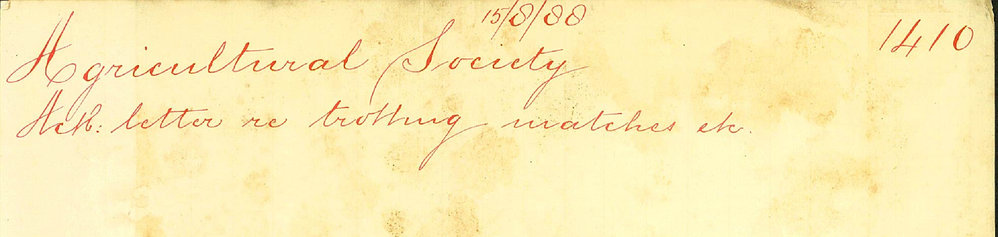 15/8/88
1410
Agricultural Society
Ack: letter re trotting matches etc.